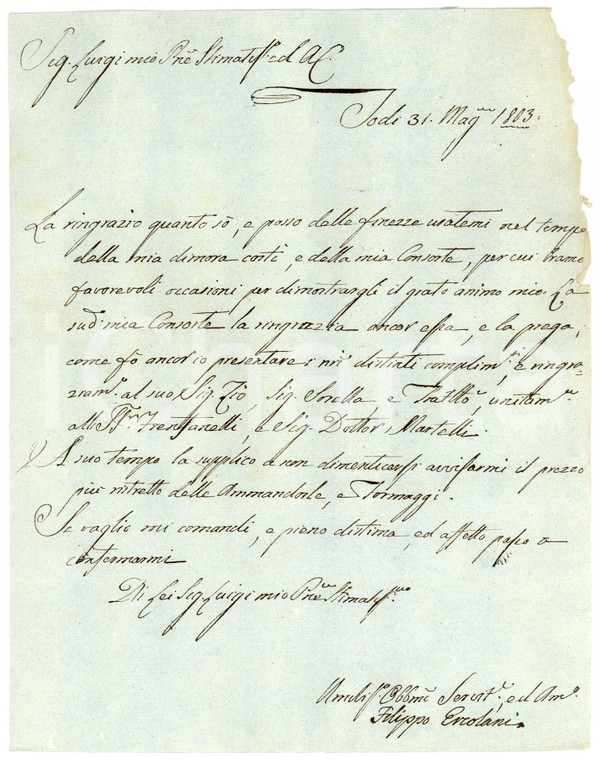 Sig. Luigi mio Pne Stimatiss. ed A.C.
Todi 31. Mag. 1803.
La ringrazio quanto sò, e posso delle finezze usatemi nel tempo
della mia dimora costì, e della mia Consorte, per cui bramo
favorevoli occasioni, per dimostrargli il grato animo mio. La
sud. mia Consorte la ringrazzia ancor essa, e la prega,
come fò ancor io presentare i nri distinti complim. e ringra-
ziam. al suo Sig. Zio, Sig. Sorella e Fratllo, unitam.
alli Trentanelli, e Sig. Dottor Martelli.
A suo tempo la supplico a non dimenticarsi avvisarmi il prezzo
più ristretto delle Ammandorle, e Formaggi.
Se vaglio mi comandi, e pieno di stima, ed affetto passo a
confermarmi
Di Lei Sig. Luigi mio Pne Stimatiss.mo
Umiliss. Obbmo Servit. ed Am.
Filippo Ercolani.